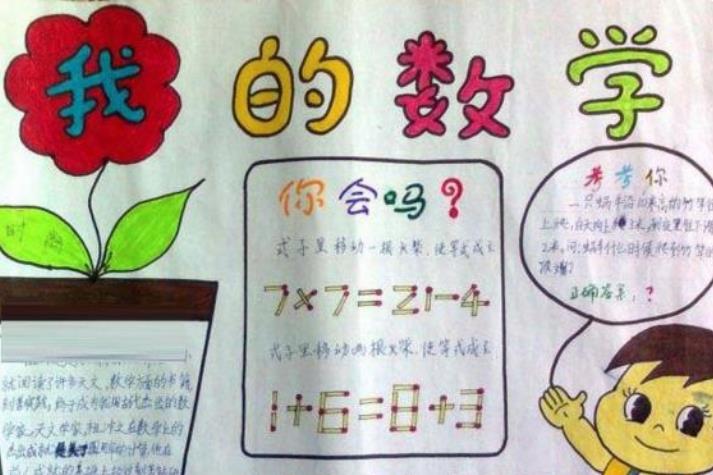 我的数学
时尚
你会吗?
式子里移动一根火柴,使等式成立
7×7=21-4
式子里移动两根火柴,使等式成立
1+6=8+3
考考你
一只蜗牛沿10米高的
上爬,白天向上
2米,问:蜗牛什么时候爬到
正确答案:?
就阅读了许多天文、数学方面的书籍
终于成为我国古代杰出的数
学家、天文学家,祖冲之在数学上的
杰出成就是关于圆周率的计算,他在